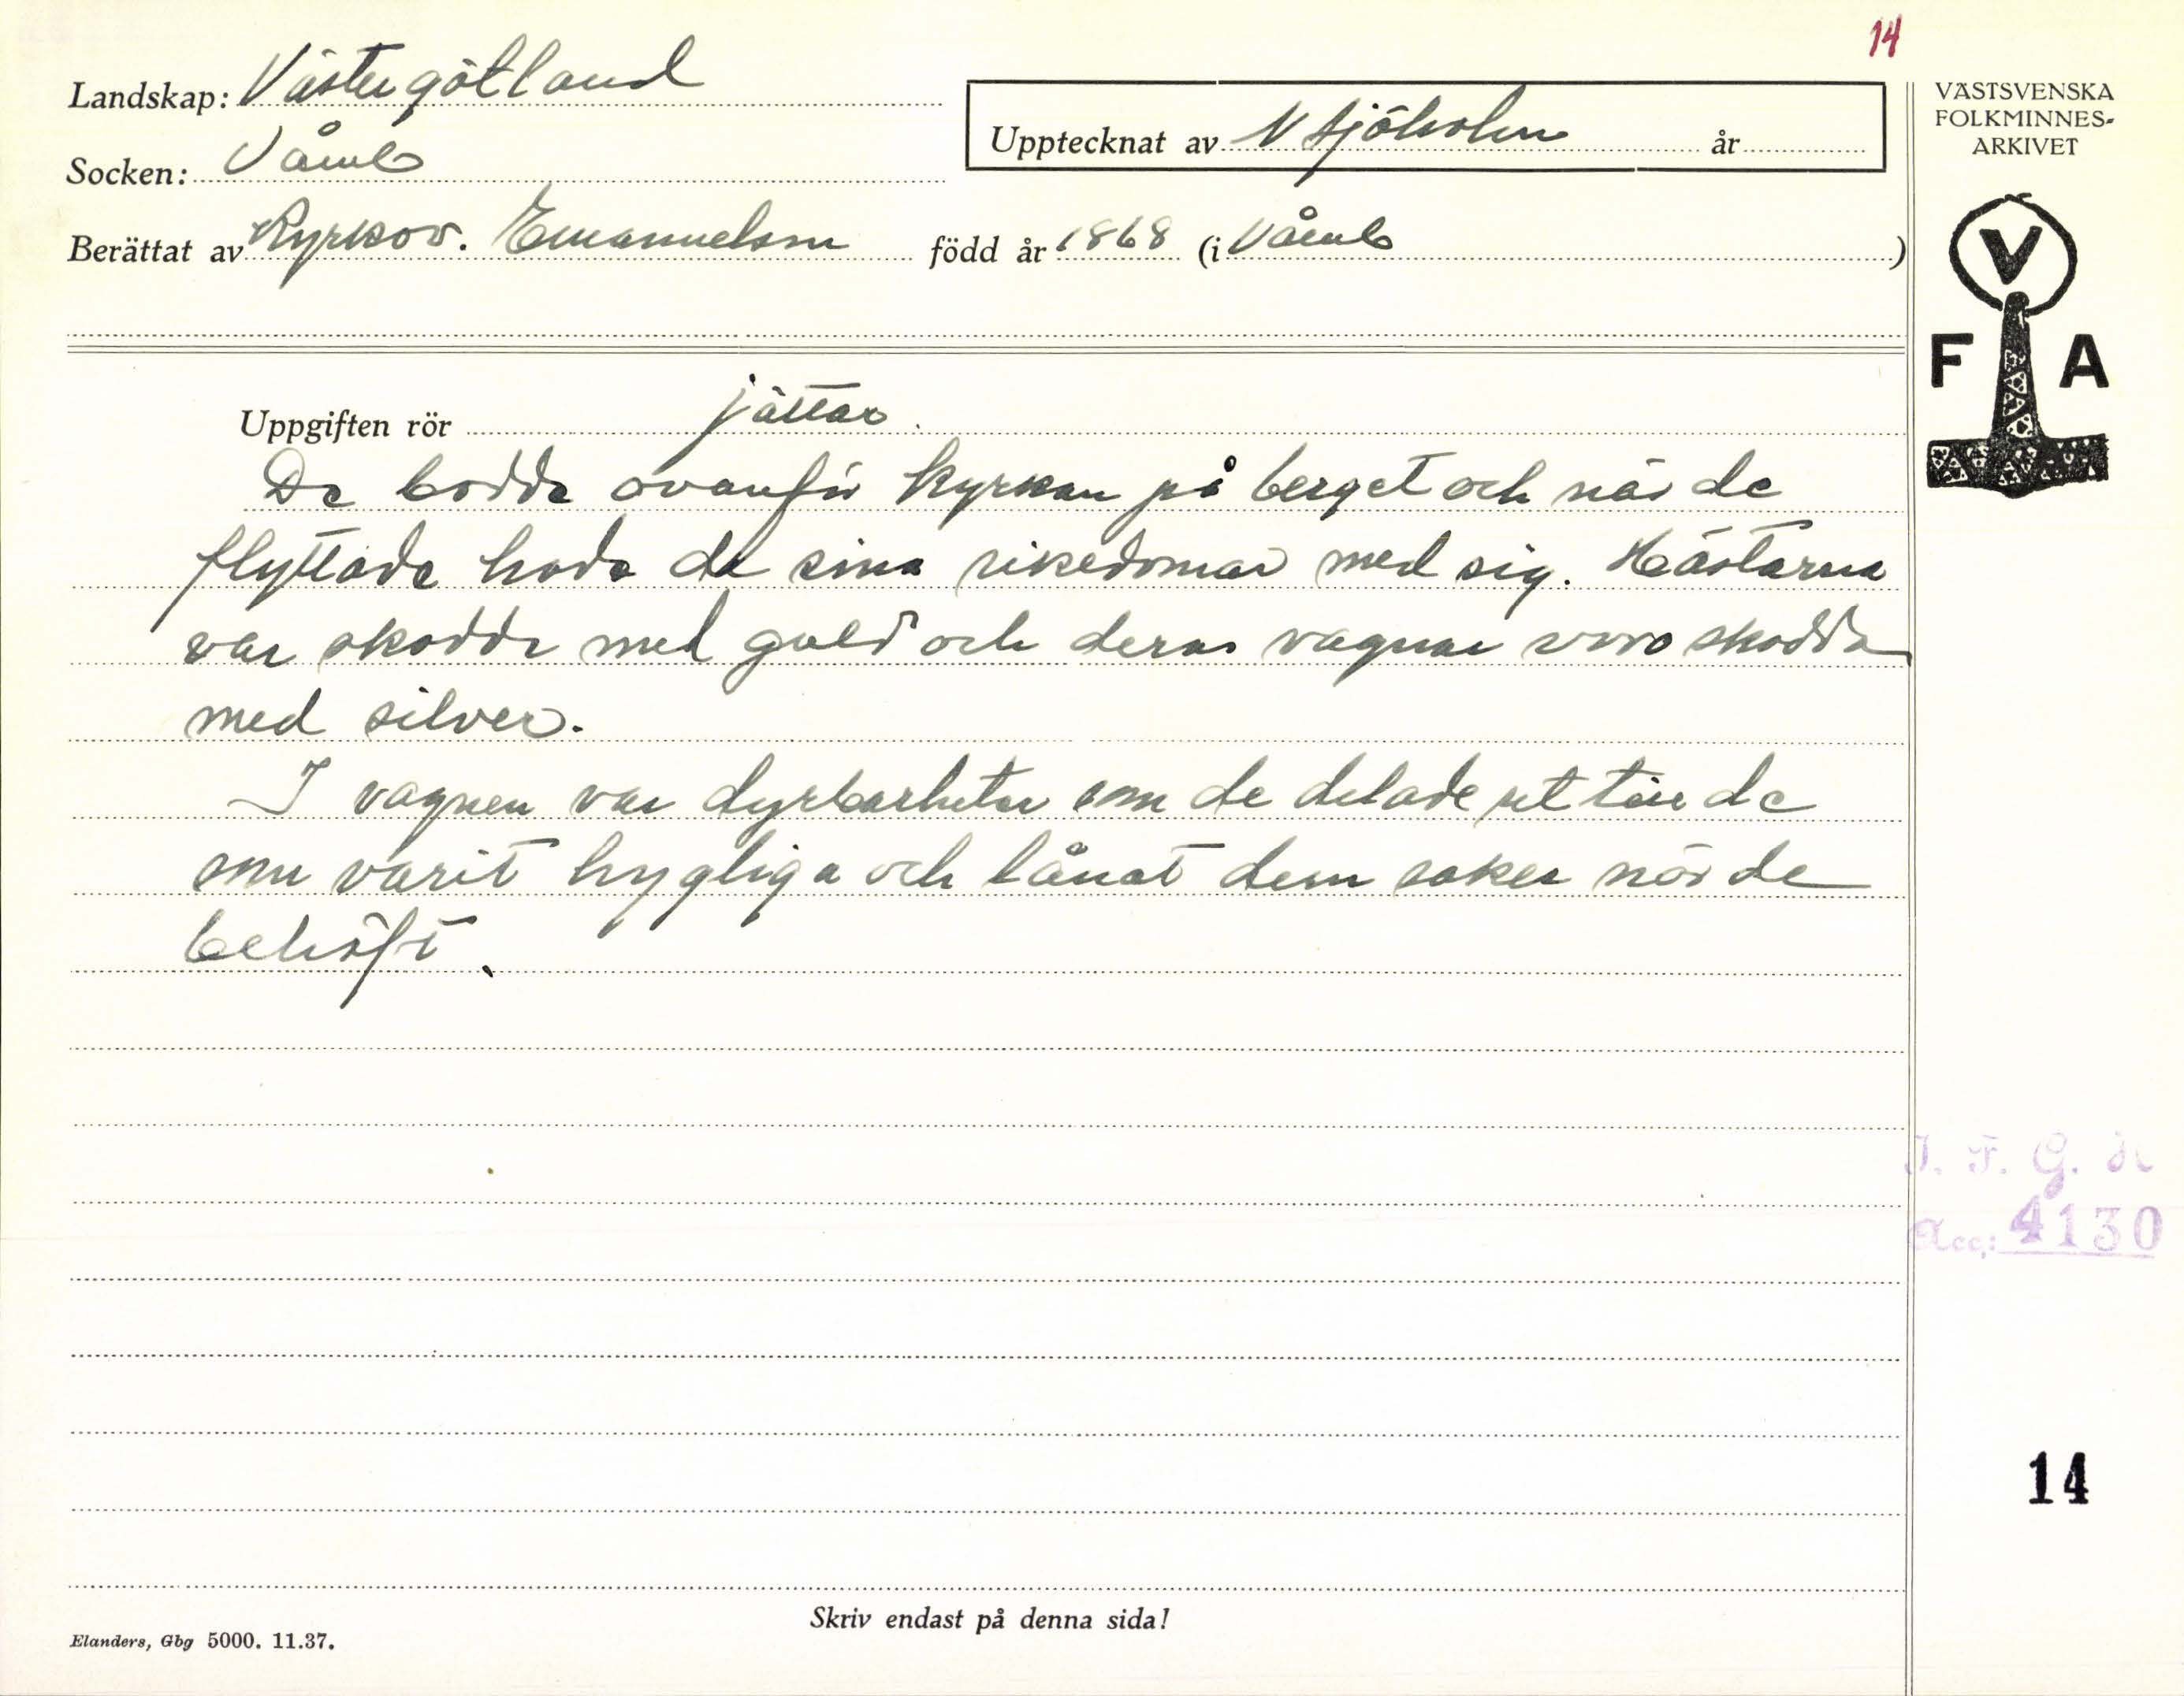 14
Landskap: Västergötland
Socken: Våmb
Berättat av Kyrkov. Emanuelson född år 1868 (i Våmb)
Upptecknat av N Sjöholm år
VÄSTSVENSKA
FOLKMINNES-
ARKIVET
V
F A
Uppgiften rör jättar.
De bodde ovanför kyrkan på berget och när de
flyttade hade de sina rikedomar med sig. Hästarna
var skodde med guld och deras vagnar voro skodda
med silver.
I vagnen var dyrbarheter som de delade ut till de
som varit hygliga och lånat dem saker när de
behöft.
I. F. G. H
Acc: 4130
14
Skriv endast på denna sida!
Elanders, Gbg 5000. 11.37.